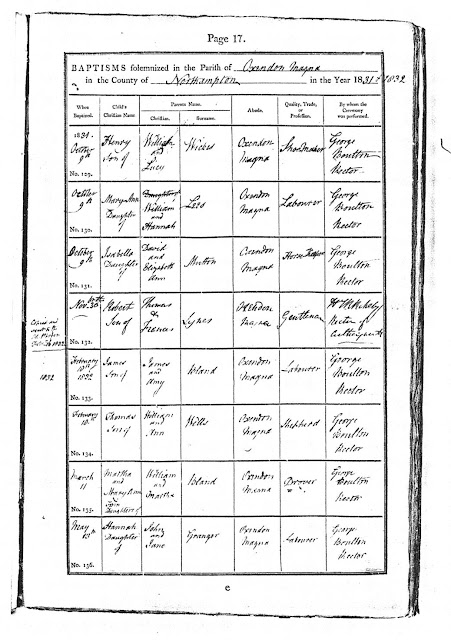 Page 17.
BAPTISMS solemnized in the Parish of Oxendon Magna
in the County of Northampton in the Year 1831 & 1832
When Baptized. Child's Christian Name. Parents Name. Christian. Surname. Abode. Quality, Trade, or Profession. By whom the Ceremony was performed.
1831.
October 9th
No. 129.
Henry Son of
William and Lucy
Oxendon Magna
Shoemaker
George Boulton Rector
October 9th
No. 130.
Mary Ann Daughter of
Daughter of William and Hannah
Oxendon Magna
Labourer
George Boulton Rector
October 9th
No. 131.
Isabella Daughter of
David and Elizabeth Ann
Mutton
Oxendon Magna
George Boulton Rector
Novr.
No. 132.
Robert Son of
Thomas & Frances
Lynes
Oxendon Magna
Gentleman
Rector of
Copied and
1832
February 10th 1832
No. 133.
James Son of
James and Amy
Bland
Oxendon Magna
Labourer
George Boulton Rector
February 10th
No. 134.
Thomas Son of
William and Ann
Wells
Oxendon Magna
Shepherd
George Boulton Rector
March 11
No. 135.
Martha and Mary Ann Twin Daughters of
William and Martha
Bland
Oxendon Magna
Drover
George Boulton Rector
May 13th
No. 136.
Hannah Daughter of
John and Jane
Granger
Oxendon Magna
Labourer
George Boulton Rector
e